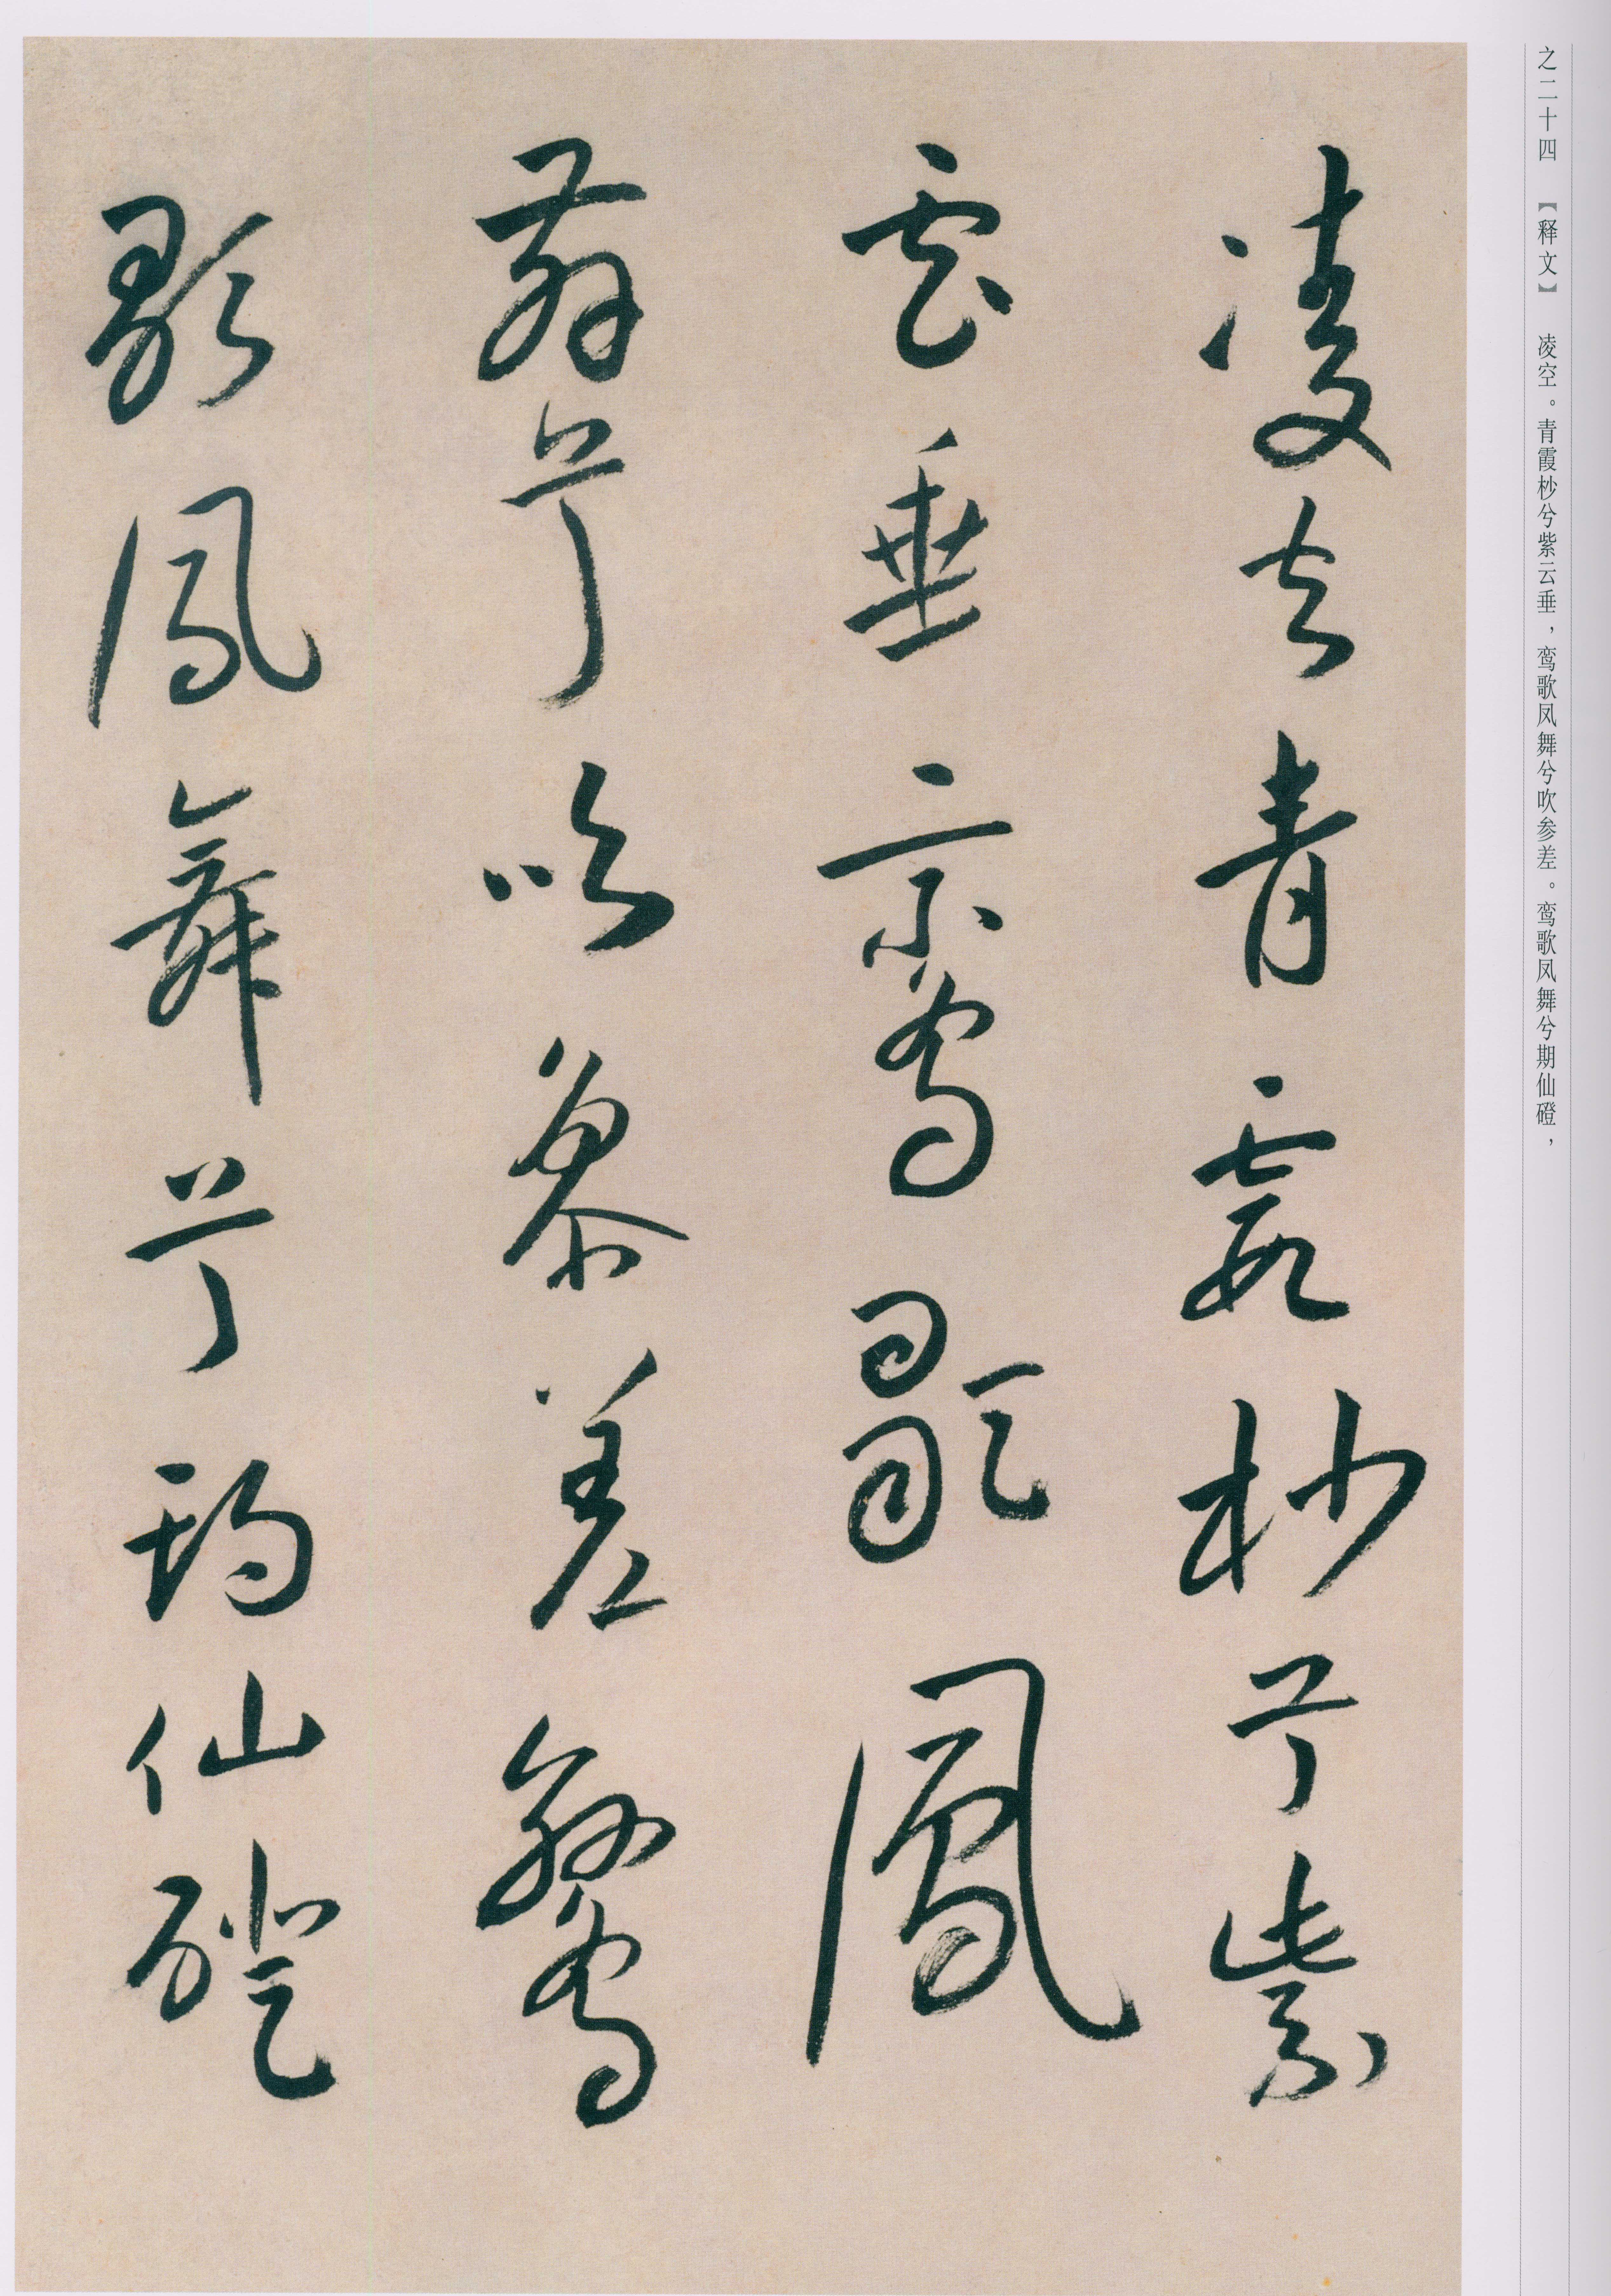 之二十四 【释文】 凌空。青霞杪兮紫云垂，鸾歌凤舞兮吹参差。鸾歌凤舞兮期仙磴，
凌空青霞杪兮紫
雲垂鸞歌鳳
舞兮吹參差鸞
歌鳳舞兮期仙磴